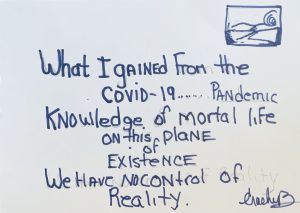 What I gained from the
COVID-19...... Pandemic
Knowledge of mortal life
on this plane
of
Existence
We Have no control of
Reality.